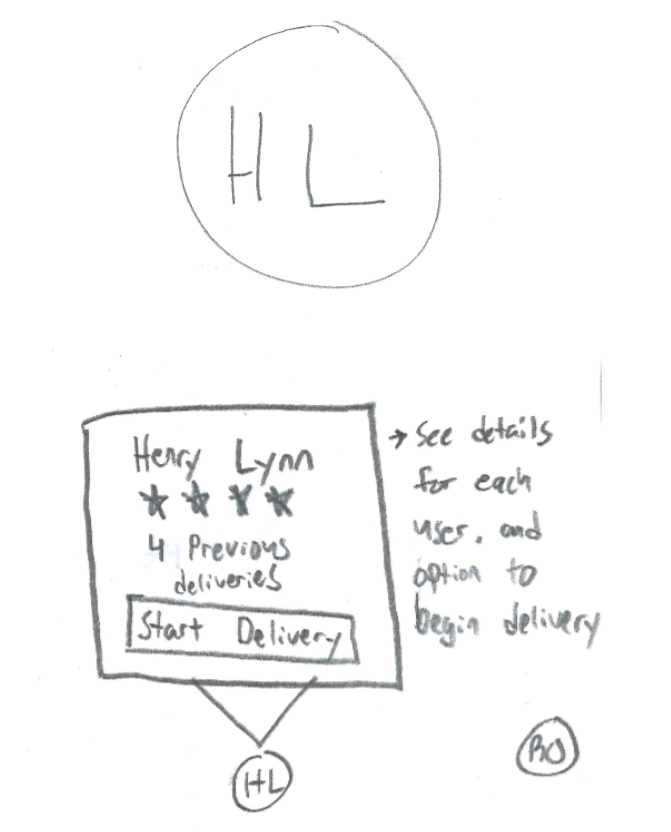 H L
Henry Lynn
4 Previous
deliveries
Start Delivery
→ See details
for each
user, and
option to
begin delivery
HL